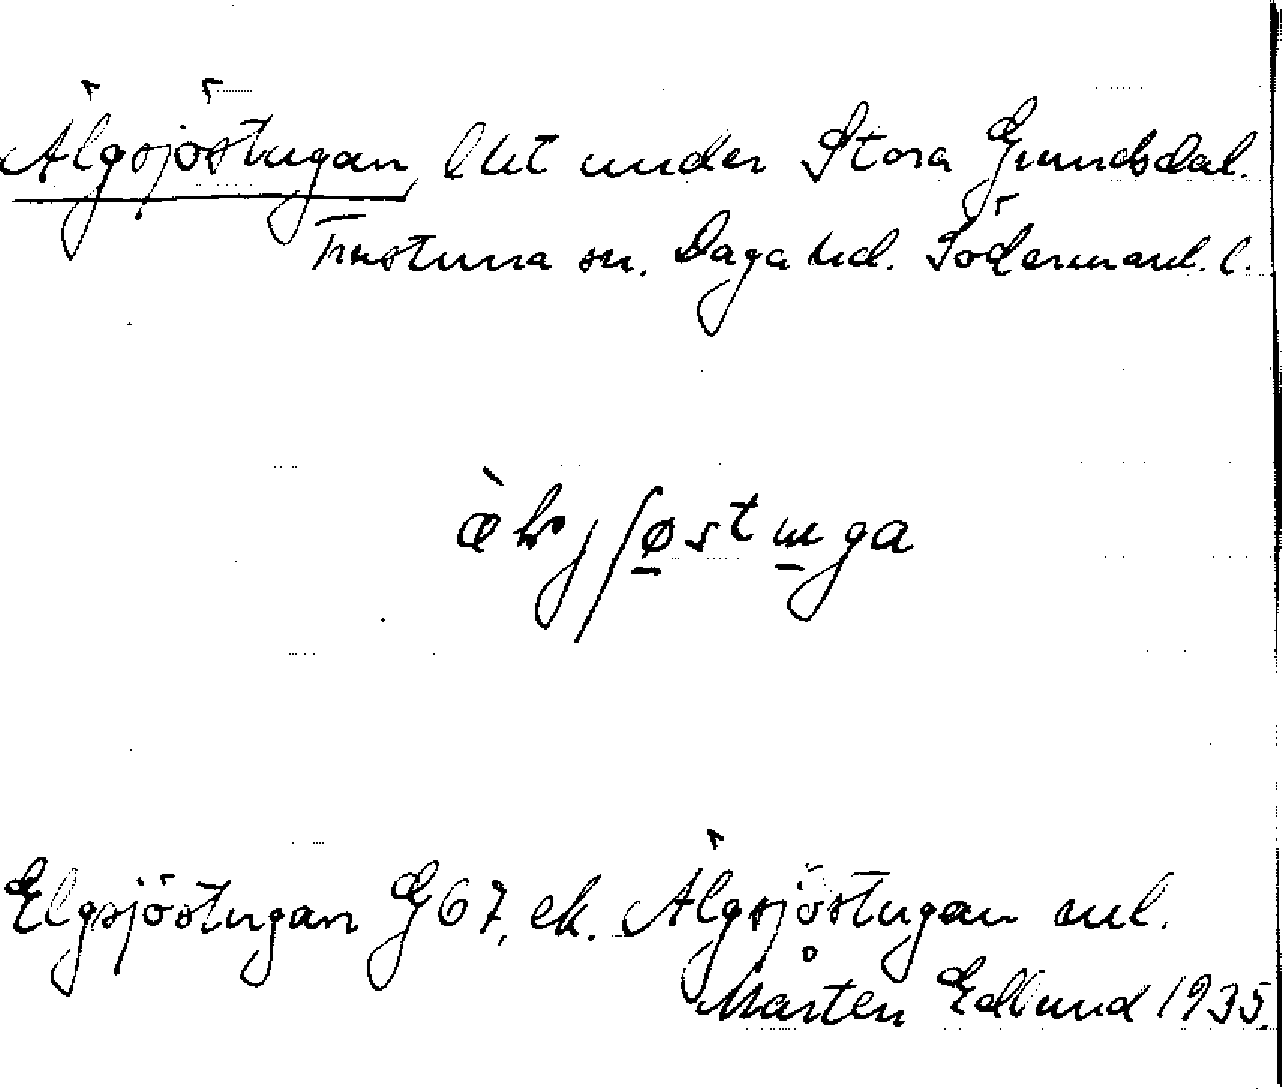 Älgsjöstugan, lht under Stora Grundsdal.
Frustuna sn. Daga hd. Södermanl. l.
Elgsjöstugan G67, ek. Älgsjöstugan ml.
Mårten Edlund 1935.